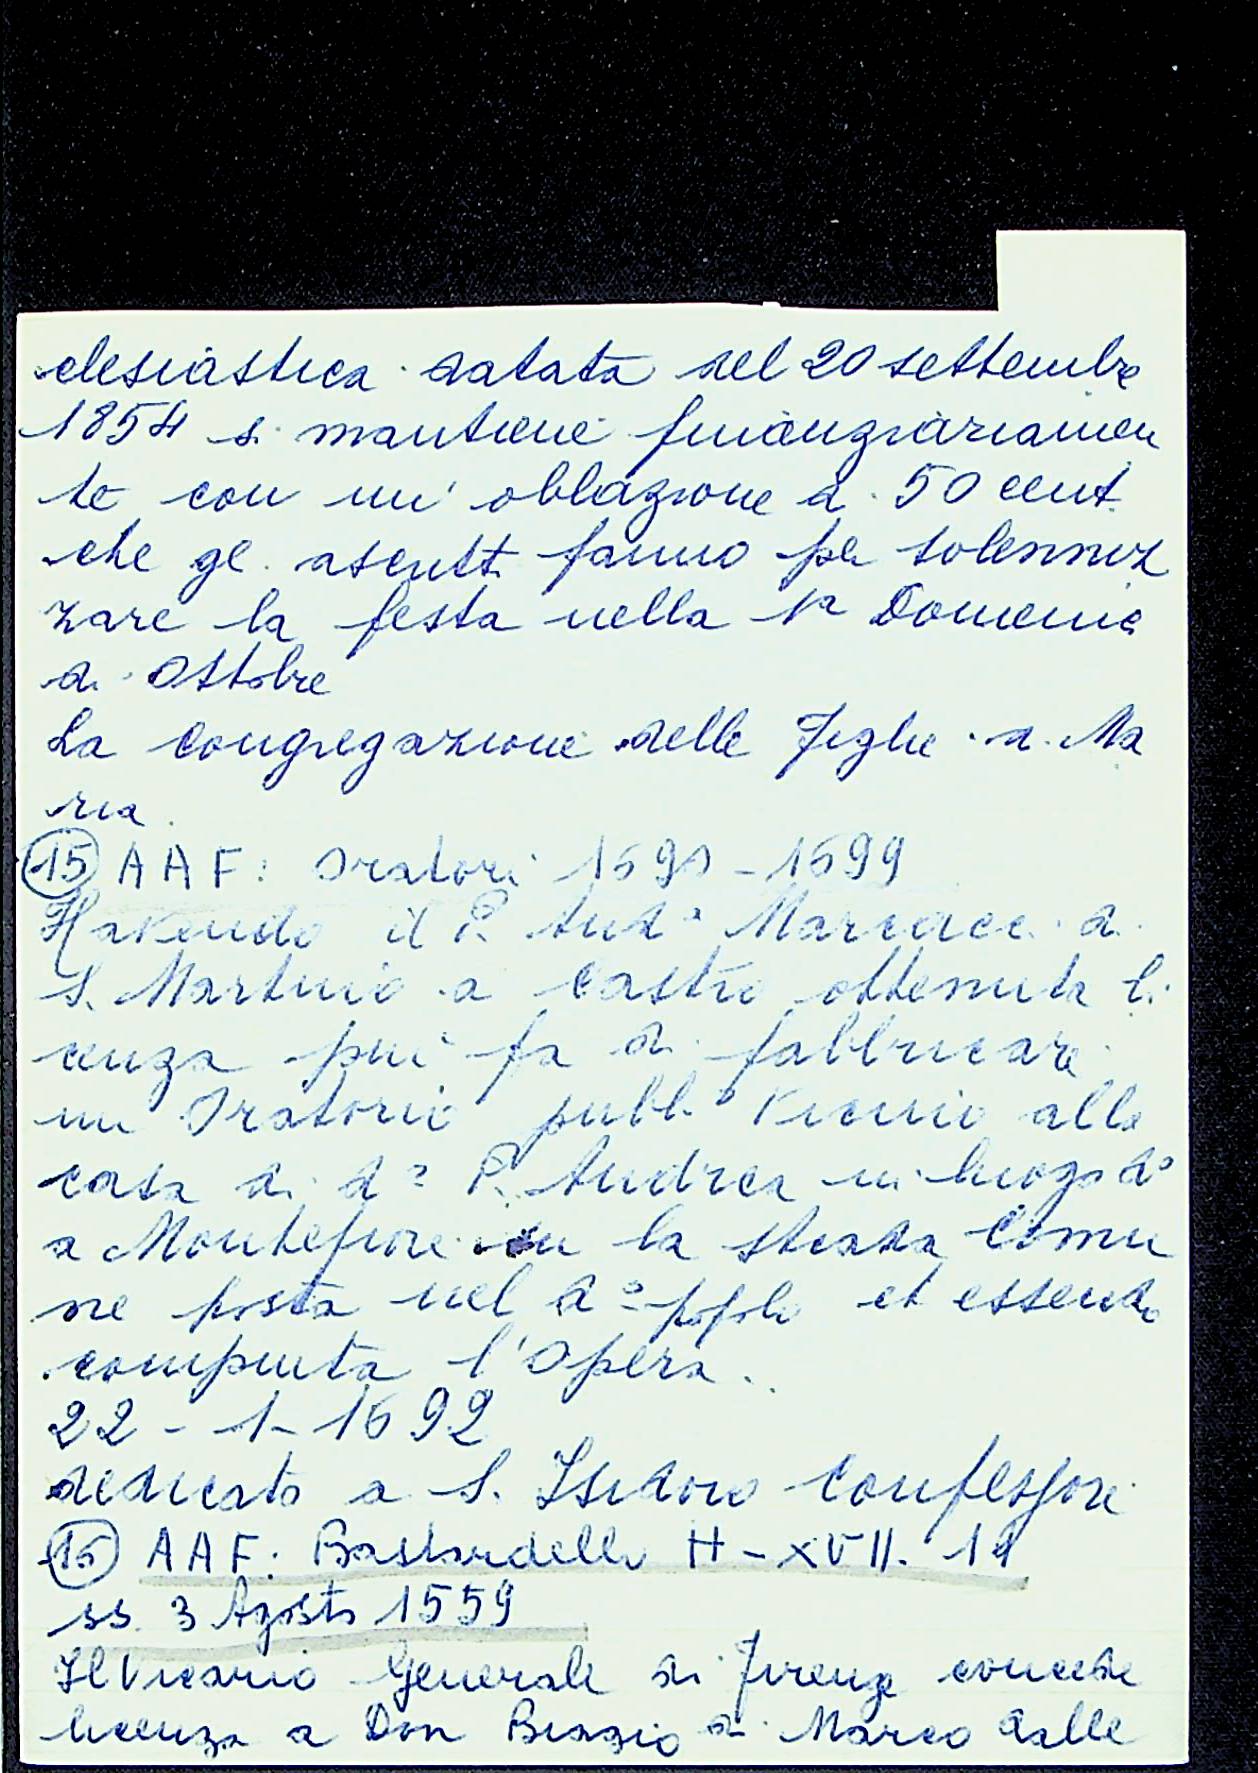 clesiastica datata del 20 settembre
1854 si mantiene finanziariamen
te con un' oblazione di 50 cent.
che gli ascritti fanno per solenniz
zare la festa nella 1a Domenica
di Ottobre
La Congregazione delle Figlie di Ma
ria.
15 AAF: Oratori 1690-1699
Havendo il P. Ant° di
S. Martino a Castro ottenuta li
cenza più fa di fabbricare
un Oratorio pubb.° vicino alla
casa di d° P. Andrea in luogo d°
a Montefiore in la strada Comu
ne posta nel d° popolo et essendo
compiuta l'Opera..
22-1-1692
dedicato a S. Isidoro Confessore
AAF: Bastardello H-XVII.
ss. 3 Agosto 1559
Il Vicario Generale di Firenze concede
licenza a Don Biagio di Marco dalle